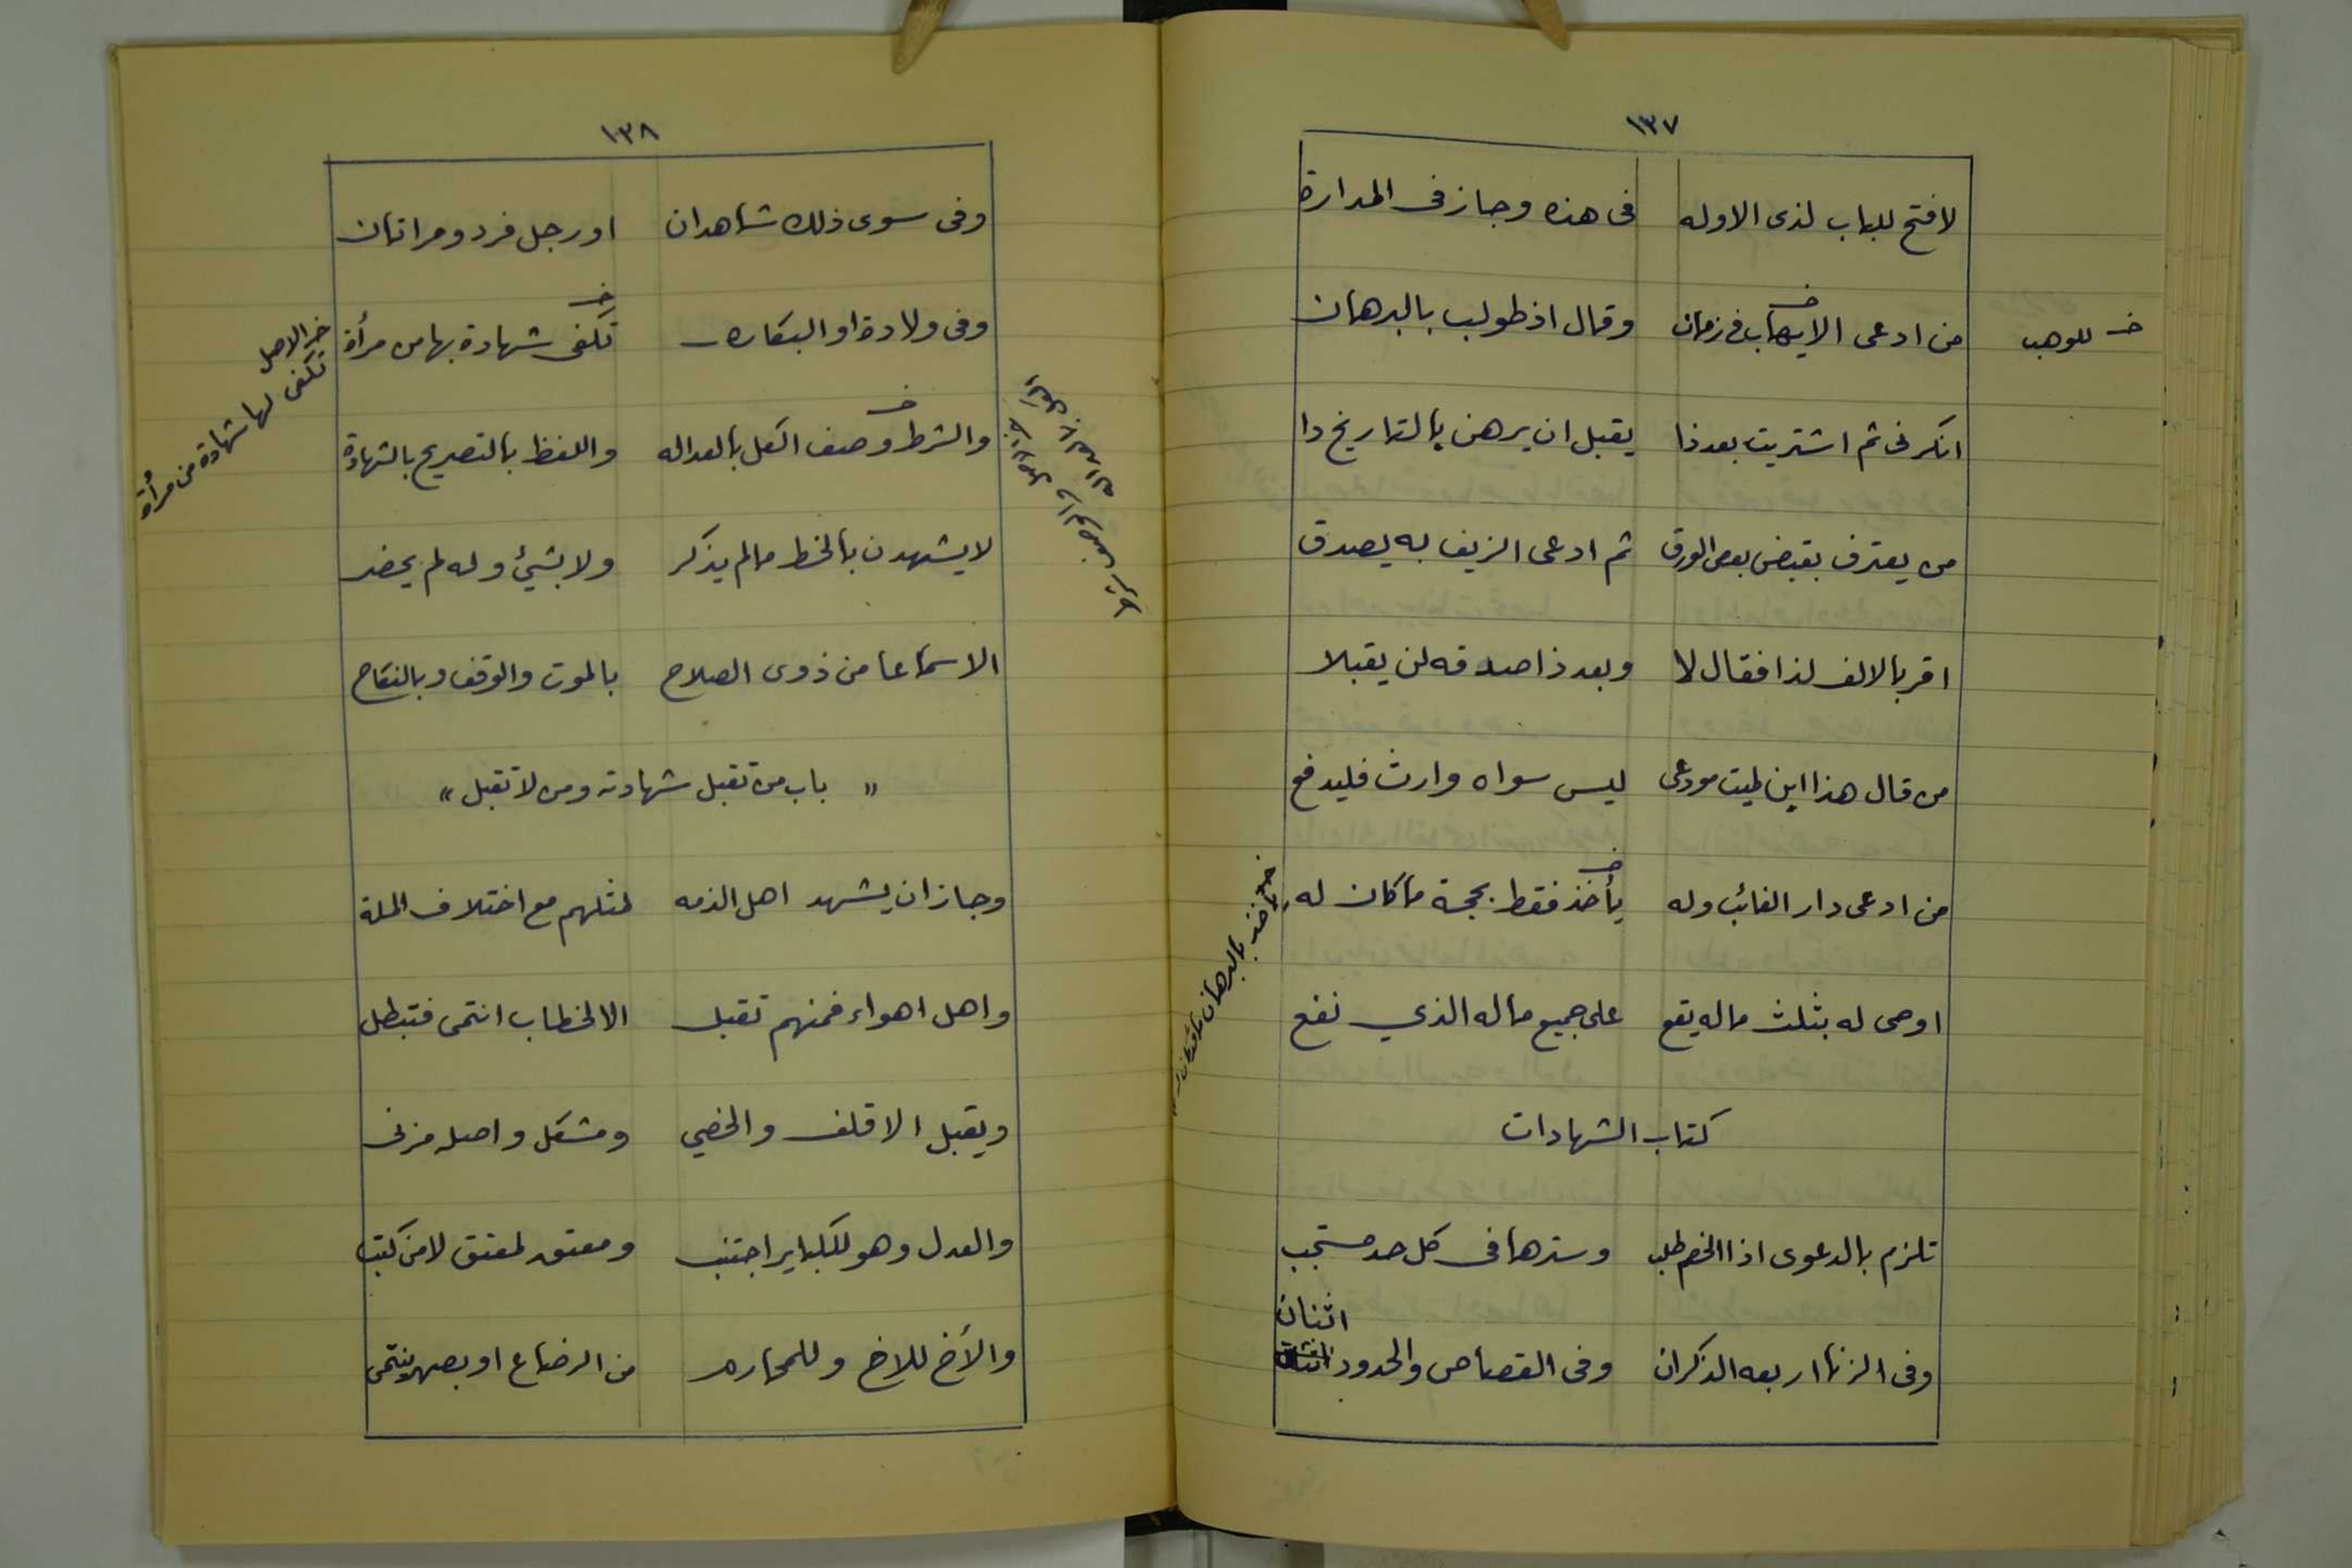 ١٣٧
لا فتح للباب لذى الاوله في هذه وجاز فى المداره
من ادعى الايهاب فى زمان وقال اذ طولب بالبرهان
خ للوهب
انكرنى ثم اشتريت بعد ذا يقبل ان يرهن بالتاريخ دا
من يعترف بقبض بعض الورق ثم ادعى الزيف به يصدق
اقر بالالف لذا فقال لا وبعد ذا صدقه لن يقبلا
من قال هذا ابن لميت مودعى ليس سواه وارث فليدفع
من ادعى دار الغائب وله يأخذ فقط بحجة ما كان له
اوصى له بثلث ماله يقع على جميع ماله الذي نفع
كتاب الشهادات
تلزم بالدعوى اذا الخصم طلب وسترها فى كل حد مستحب
وفى الزنا اربعه الذكران وفى القصاص والحدود اثنان
١٣٨
وفى سوى ذلك شاهدان او رجل فرد ومراتان
وفى ولادة او البكاره تكفى شهادة بها من مرأة
خ الاصل تكفى لها شهادة من مرأة
والشرط وصف الكل بالعداله واللفظ بالتصريح بالشهادة
لا يشهدن بالخط ما لم يذكر ولا بشئ وله لم يحضر
الا سماعا من ذوى الصلاح بالموت والوقف وبالنكاح
" باب من تقبل شهادته ومن لا تقبل "
وجاز ان يشهد اهل الذمه لمثلهم مع اختلاف الملة
واهل اهواء فمنهم تقبل الا لخطاب انتمى فتبطل
ويقبل الاقلف والخصي ومشكل واصله مزنى
والعدل وهو للكبائر اجتنب ومعتق لمعتق لا من كتب
والأخ للاخ وللمحارم من الرضاع او بصهر ينتمى